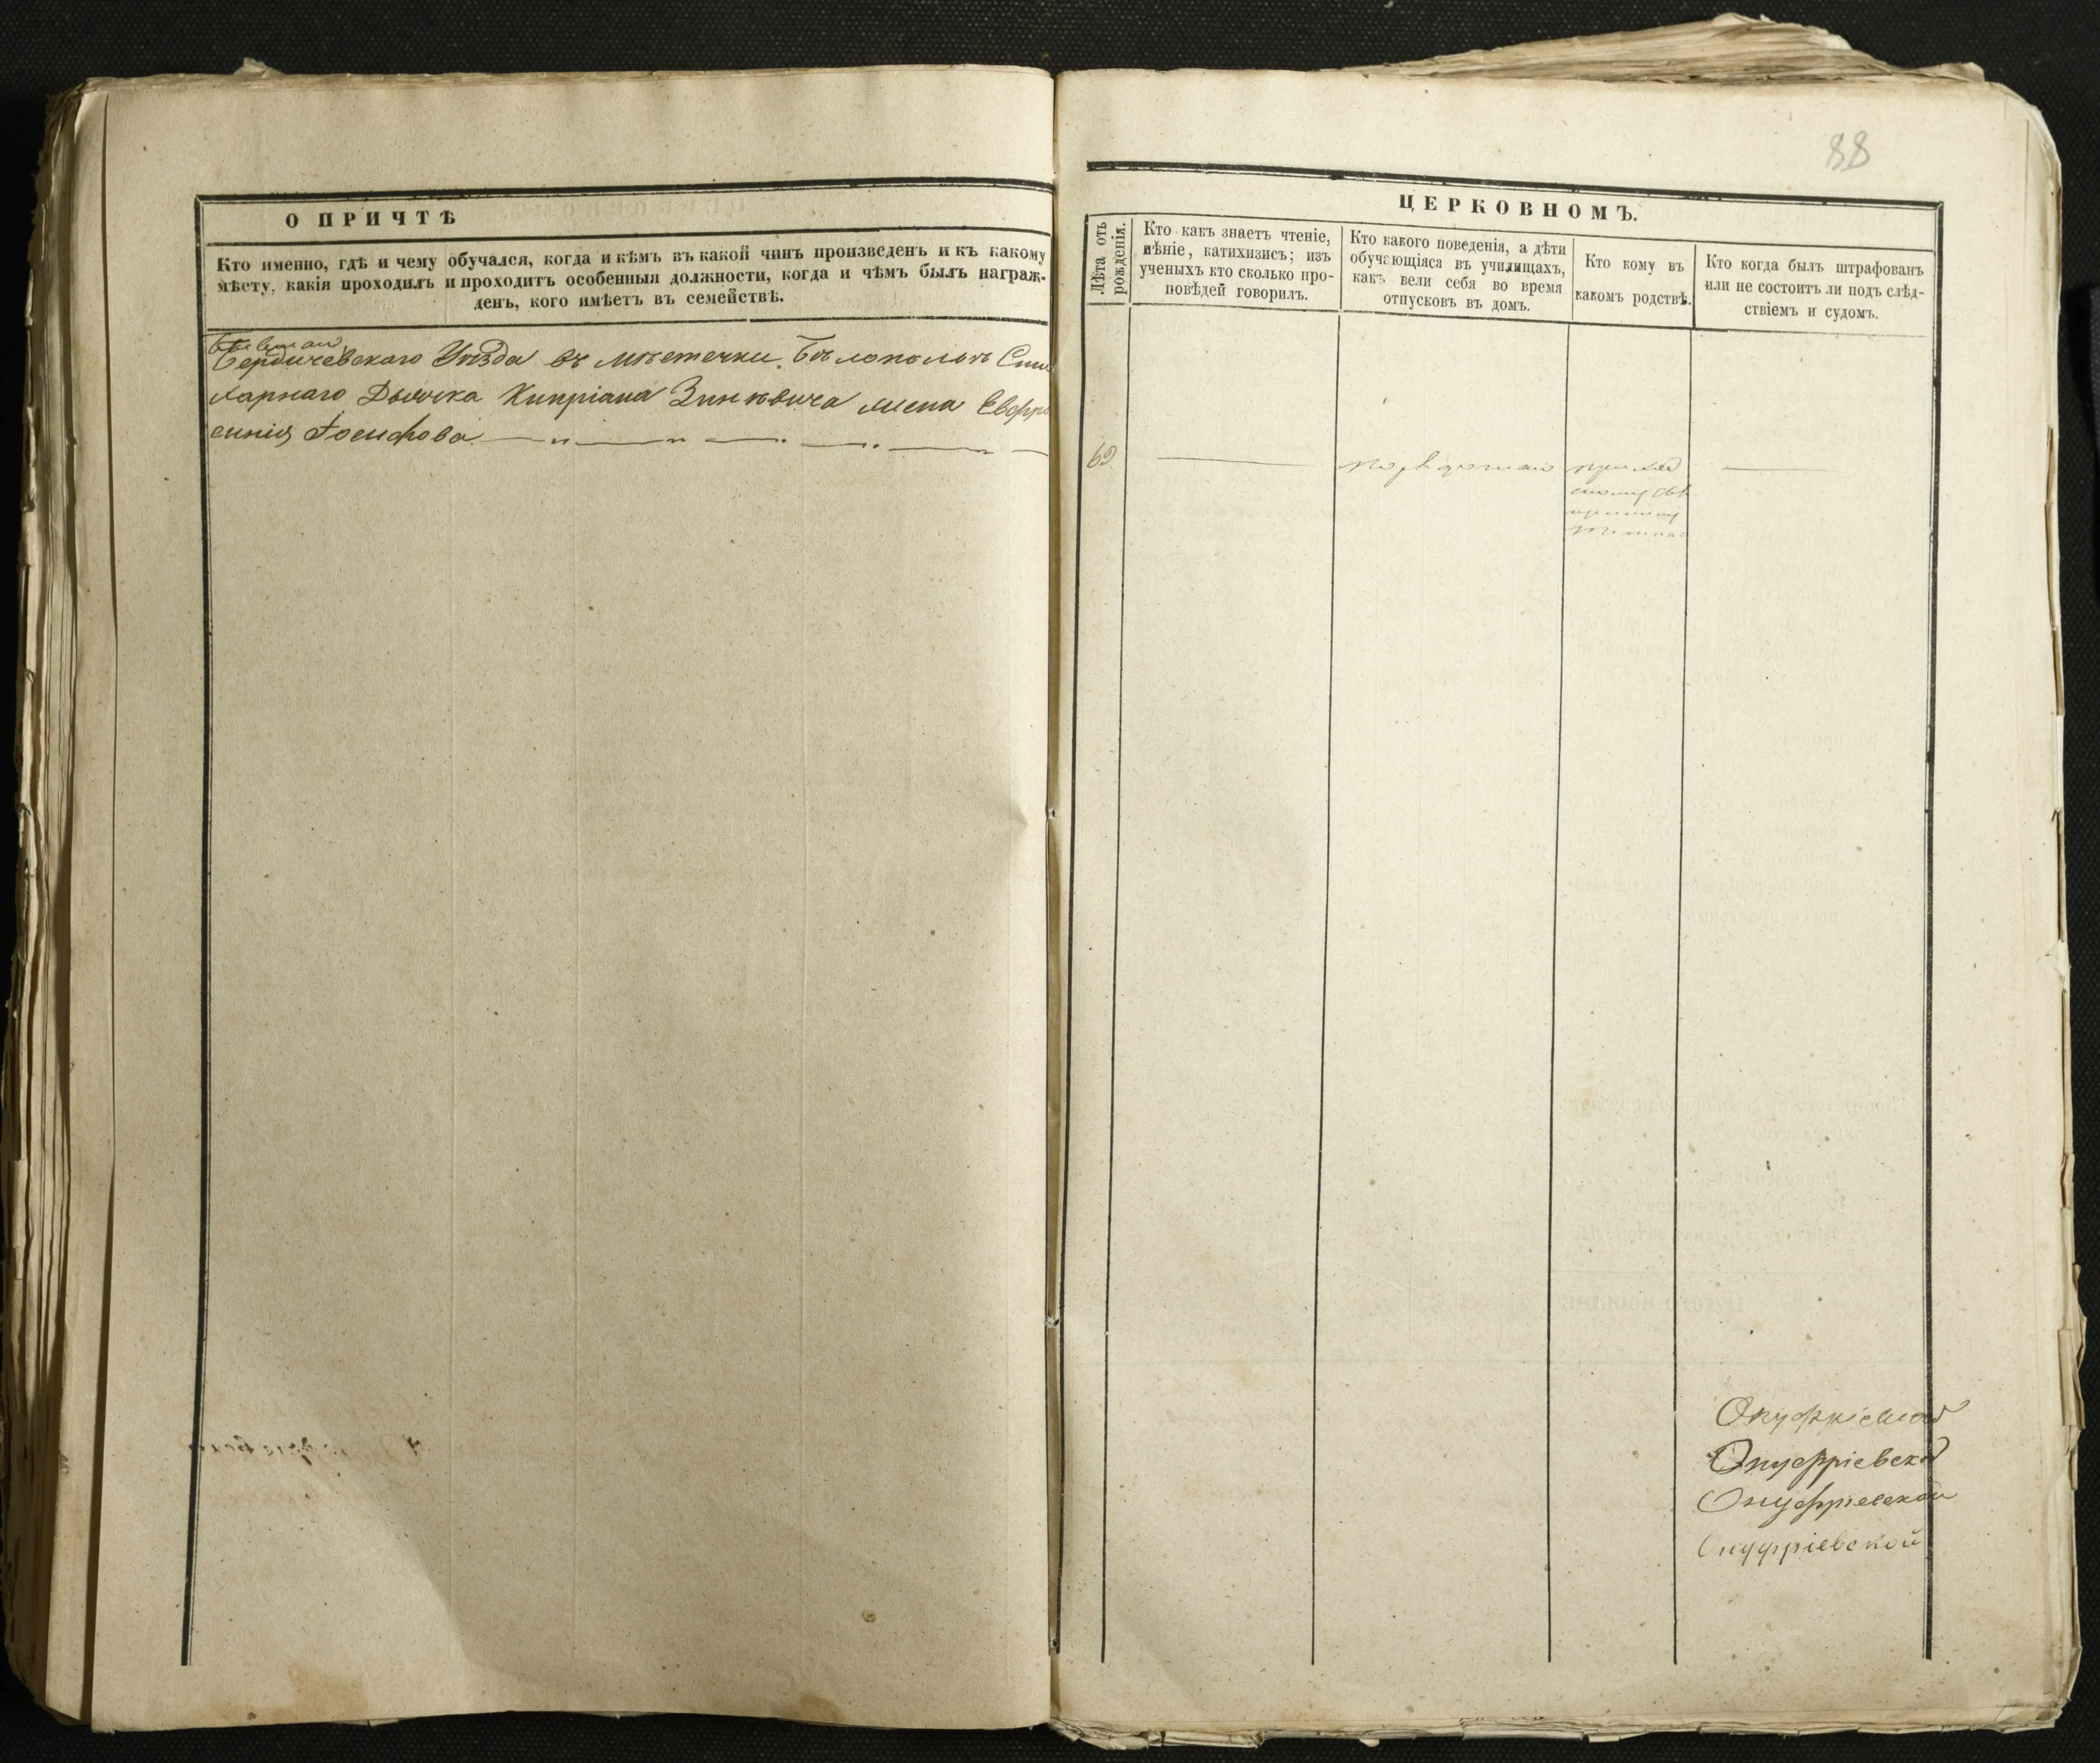 О ПРИЧТѢ
Кто именно, гдѣ и чему обучался, когда и кѣмъ въ какой чинъ произведенъ и къ какому
мѣсту, какія проходилъ и проходитъ особенныя должности, когда и чѣмъ былъ награж-
денъ, кого имѣетъ въ семействѣ.
Бердичевскаго Уѣзда въ мѣстечки Бѣлополѣ Сти
харнаго Дьячка Кипріана Зинкѣвича жена Евфро
синія Іосифова
88
ЦЕРКОВНОМЪ.
Лѣта отъ
рожденія.
Кто какъ знаетъ чтеніе,
пѣніе, катихизисъ; изъ
ученыхъ кто сколько про-
повѣдей говорилъ.
Кто какого поведенія, а дѣти
обучающіяся въ училищахъ,
какъ вели себя во время
отпусковъ въ домъ.
Кто кому въ
какомъ родствѣ.
Кто когда былъ штрафованъ
или не состоитъ ли подъ слѣд-
ствіемъ и судомъ.
Онуфріевской
Онуфріевской
Онуфріевской